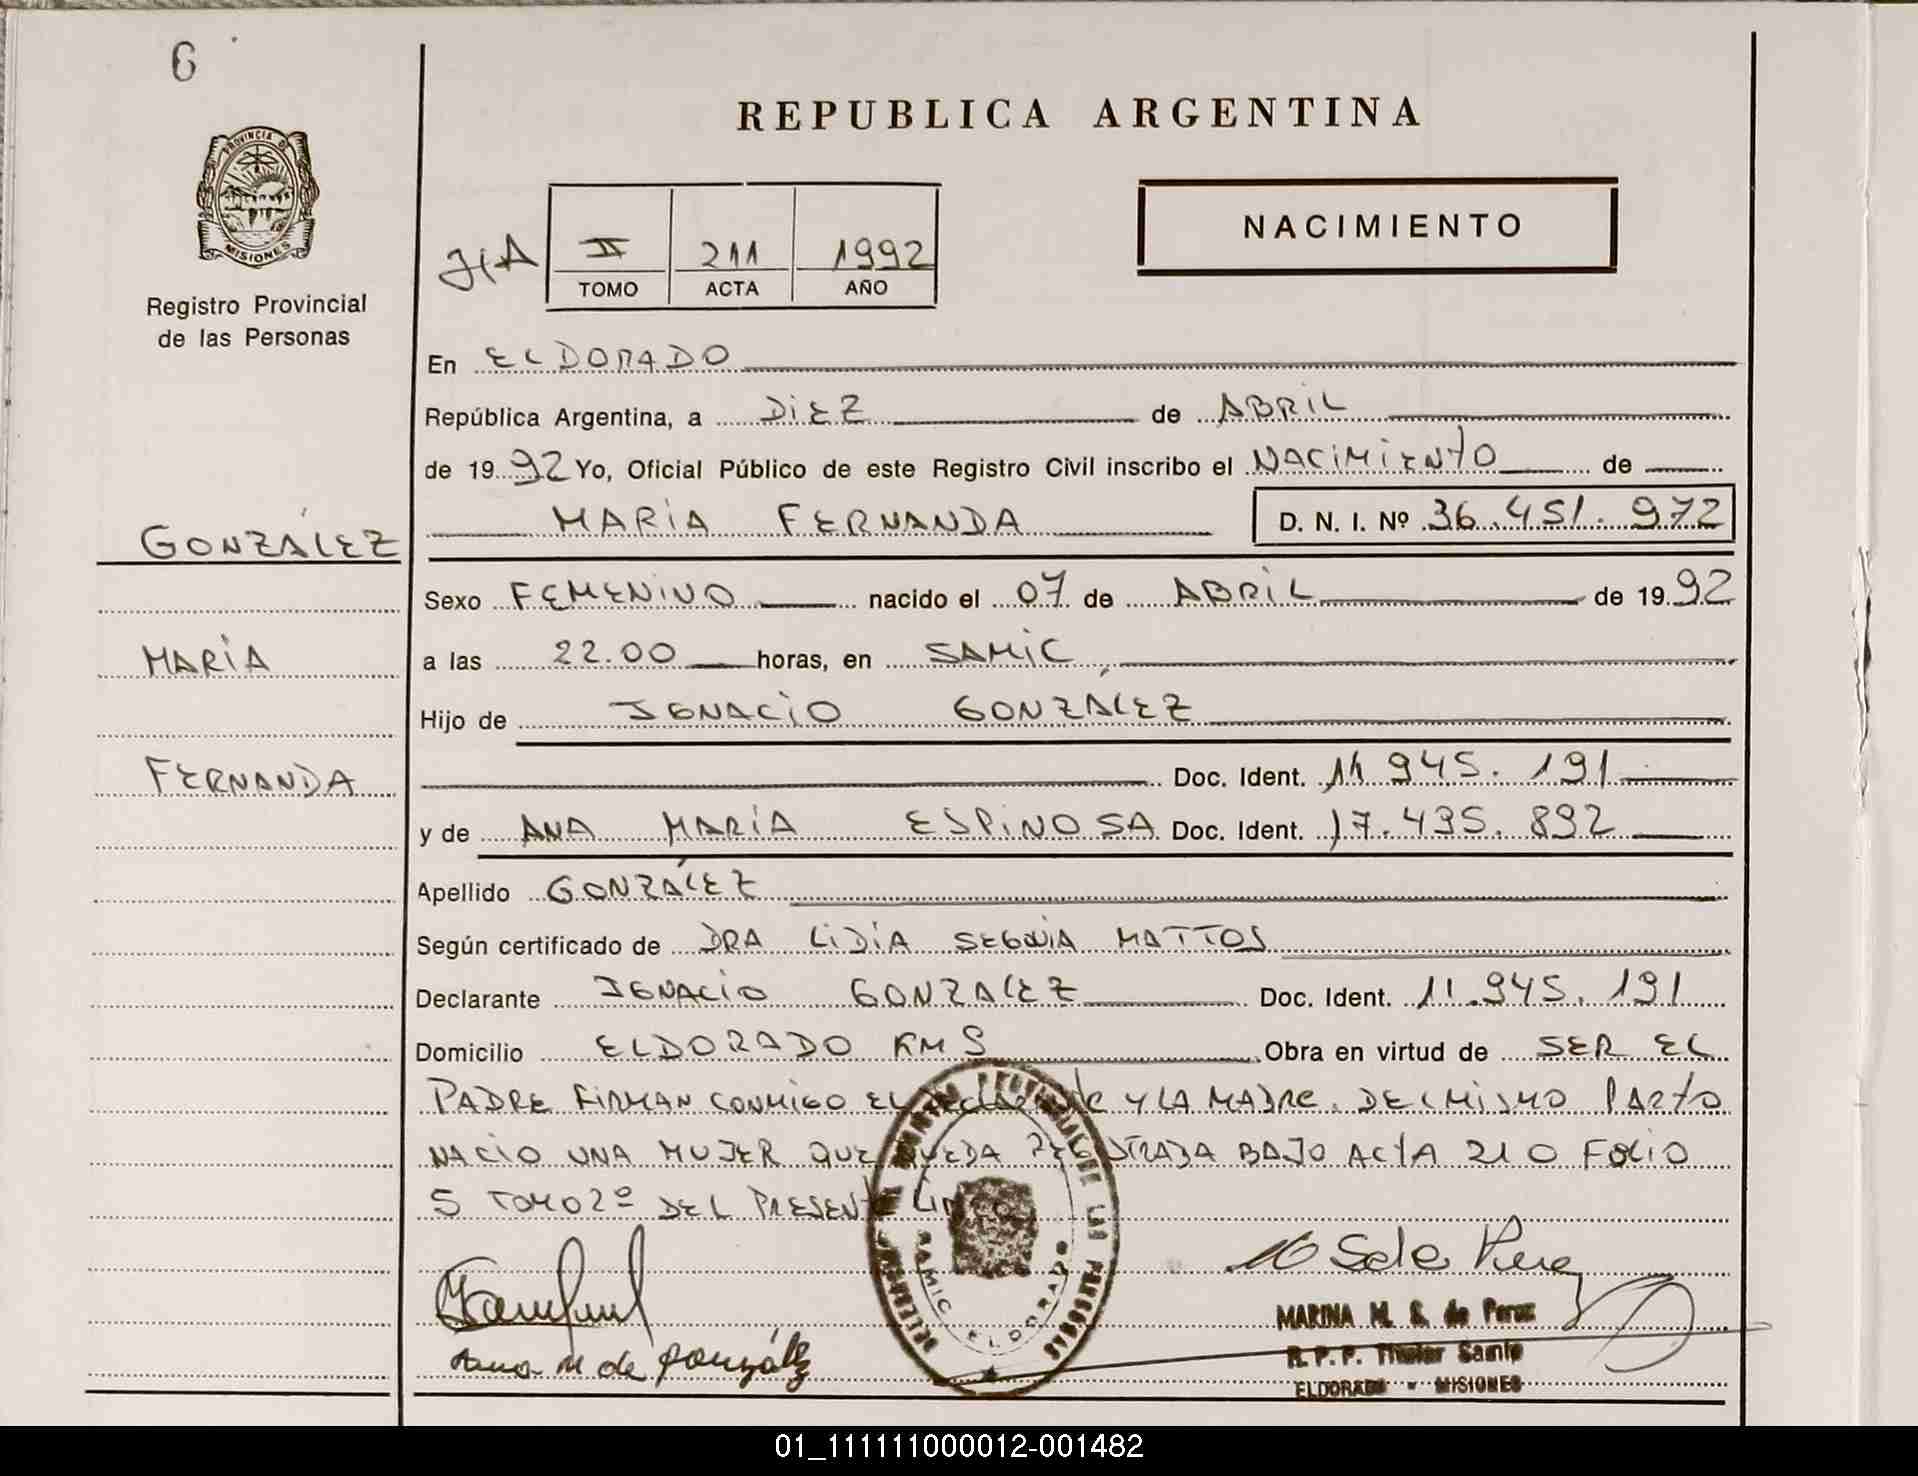 6
PROVINCIA DE
MISIONES
Registro Provincial
de las Personas
GONZÁLEZ
MARÍA
FERNANDA
REPUBLICA ARGENTINA
NACIMIENTO
II 211 1992
TOMO ACTA AÑO
En ELDORADO
República Argentina, a DIEZ de ABRIL
de 1992 Yo, Oficial Público de este Registro Civil inscribo el NACIMIENTO de
MARÍA FERNANDA D. N. I. Nº 36.451.972
Sexo FEMENINO nacido el 07 de ABRIL de 1992
a las 22.00 horas, en SAMIC
Hijo de IGNACIO GONZÁLEZ
Doc. Ident. 11.945.191
y de ANA MARÍA ESPINOSA Doc. Ident. 17.435.892
Apellido GONZÁLEZ
Según certificado de DRA LIDIA SEGOVIA MATTOS
Declarante IGNACIO GONZALEZ Doc. Ident. 11.945.191
Domicilio ELDORADO KM 5 Obra en virtud de SER EL
PADRE FIRMAN CONMIGO EL Y LA MADRE. DEL MISMO PARTO
NACIO UNA MUJER QUE QUEDA REGISTRADA BAJO ACTA 210 FOLIO
5 TOMO 2º DEL PRESENTE
Ana M de González
SAMIC ELDORADO
MARINA M. S. de Perez
R. P. P. Titular Samic
ELDORADO - MISIONES
01_111111000012-001482